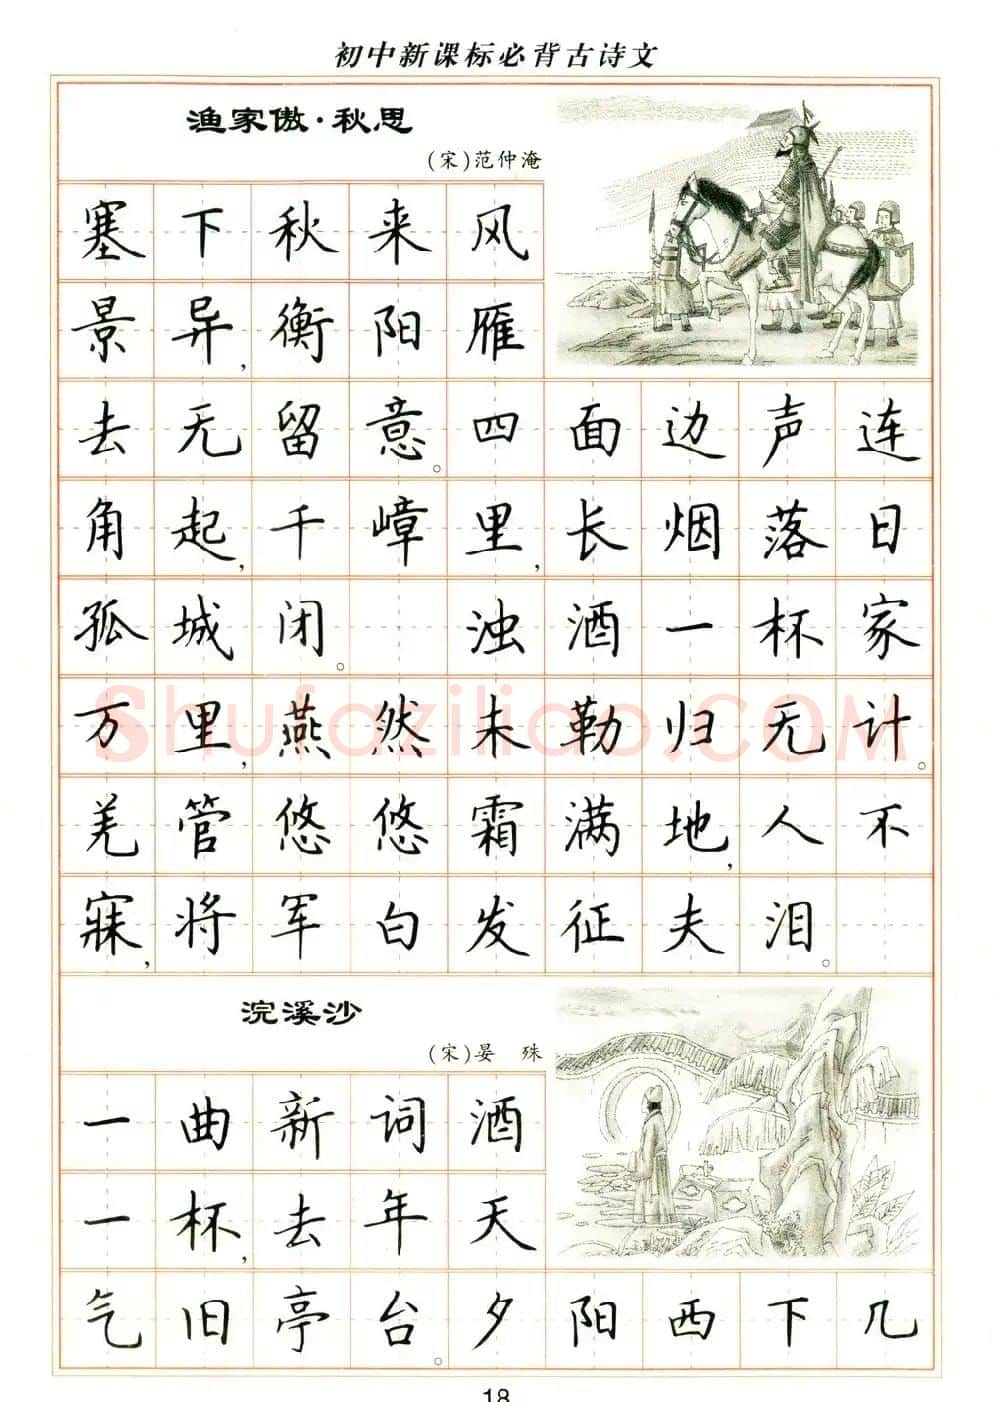 初中新课标必背古诗文
渔家傲·秋思
(宋)范仲淹
塞下秋来风
景异,衡阳雁
去无留意。四面边声连
角起,千嶂里,长烟落日
孤城闭。 浊酒一杯家
万里,燕然未勒归无计。
羌管悠悠霜满地,人不
寐,将军白发征夫泪。
Shufaziliao.COM
浣溪沙
(宋)晏 殊
一曲新词酒
一杯,去年天
气旧亭台。夕阳西下几
18